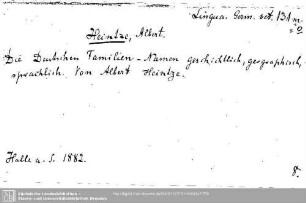 Lingua. Germ. vet. 131 m
Heintze, Albert.
Die Deutschen Familien-Namen geschichtlich, geographisch,
sprachlich. Von Albert Heintze.
Halle a. S. 1882.
8°
Sächsische Landesbibliothek -
Staats- und Universitätsbibliothek Dresden